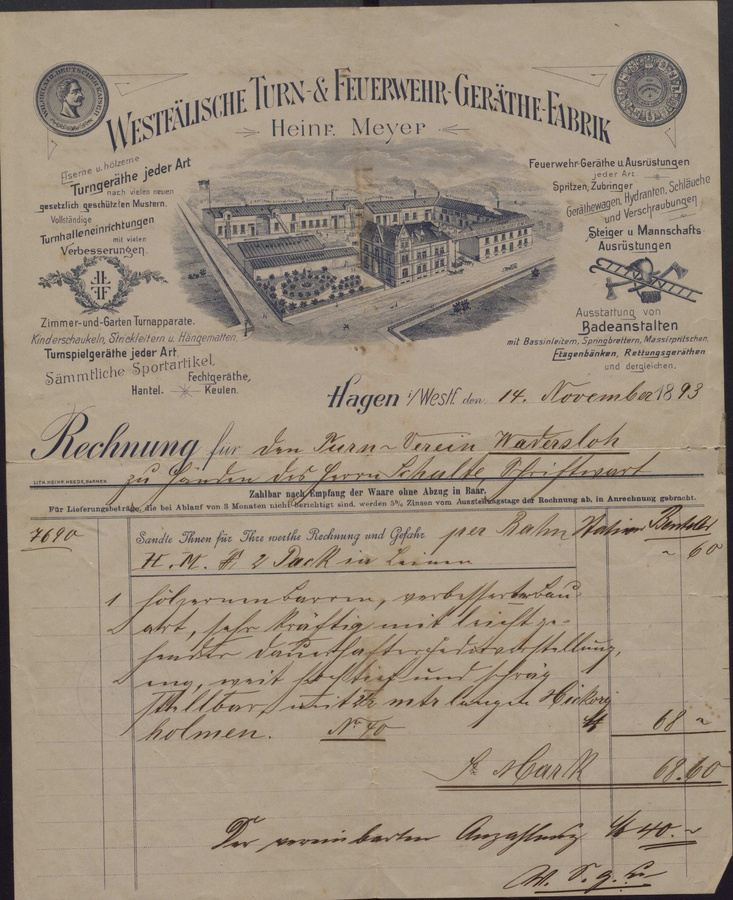 WILHELM DEUTSCHER KAISER
WESTFÄLISCHE TURN- & FEUERWEHR-GERÄTHE-FABRIK
Heinr. Meyer
Eiserne u. hölzerne
Turngeräthe jeder Art
nach vielen neuen
gesetzlich geschützten Mustern.
Vollständige
Turnhalleneinrichtungen
mit vielen
Verbesserungen.
Zimmer-und-Garten Turnapparate.
Kinderschaukeln, Strickleitern u. Hängematten.
Turnspielgeräthe jeder Art
Sämmtliche Sportartikel,
Fechtgeräthe,
Hantel. Keulen.
Feuerwehr-Geräthe u. Ausrüstungen
jeder Art
Spritzen, Zubringer
Geräthewagen, Hydranten, Schläuche
und Verschraubungen
Steiger u Mannschafts
Ausrüstungen
Ausstattung von
Badeanstalten
mit Bassinleitern, Springbrettern, Massirpritschen,
Etagenbänken, Rettungsgeräthen
und dergleichen.
Hagen i/Westf. den 14. November 1893
Rechnung für den Turn-Verein Wadersloh
zu Händen des Herrn Schulte, Schriftwart
LITH. HEINR. HEEDE, BARMEN
Zahlbar nach Empfang der Waare ohne Abzug in Baar.
Für Lieferungsbeträge, die bei Ablauf von 3 Monaten nicht berichtigt sind, werden 5% Zinsen vom Ausstellungstage der Rechnung ab, in Anrechnung gebracht.
7690 Sandte Ihnen für Ihre werthe Rechnung und Gefahr per Bahn Station
H. M. F. 2 Pack in Leinen ~ 60
1 hölzernen Barren, verbesserter Bau-
art, sehr kräftig mit leicht ge-
hender dauerhafter Federverstellung,
eng, weit hoch tief und schräg
stellbar, mit 2½ mtr langen Hickory
holmen. No 40 68 ~
Sa Mark 68.60
Der vereinbarten Anzahlung M 40. ~
W. S. g. u.